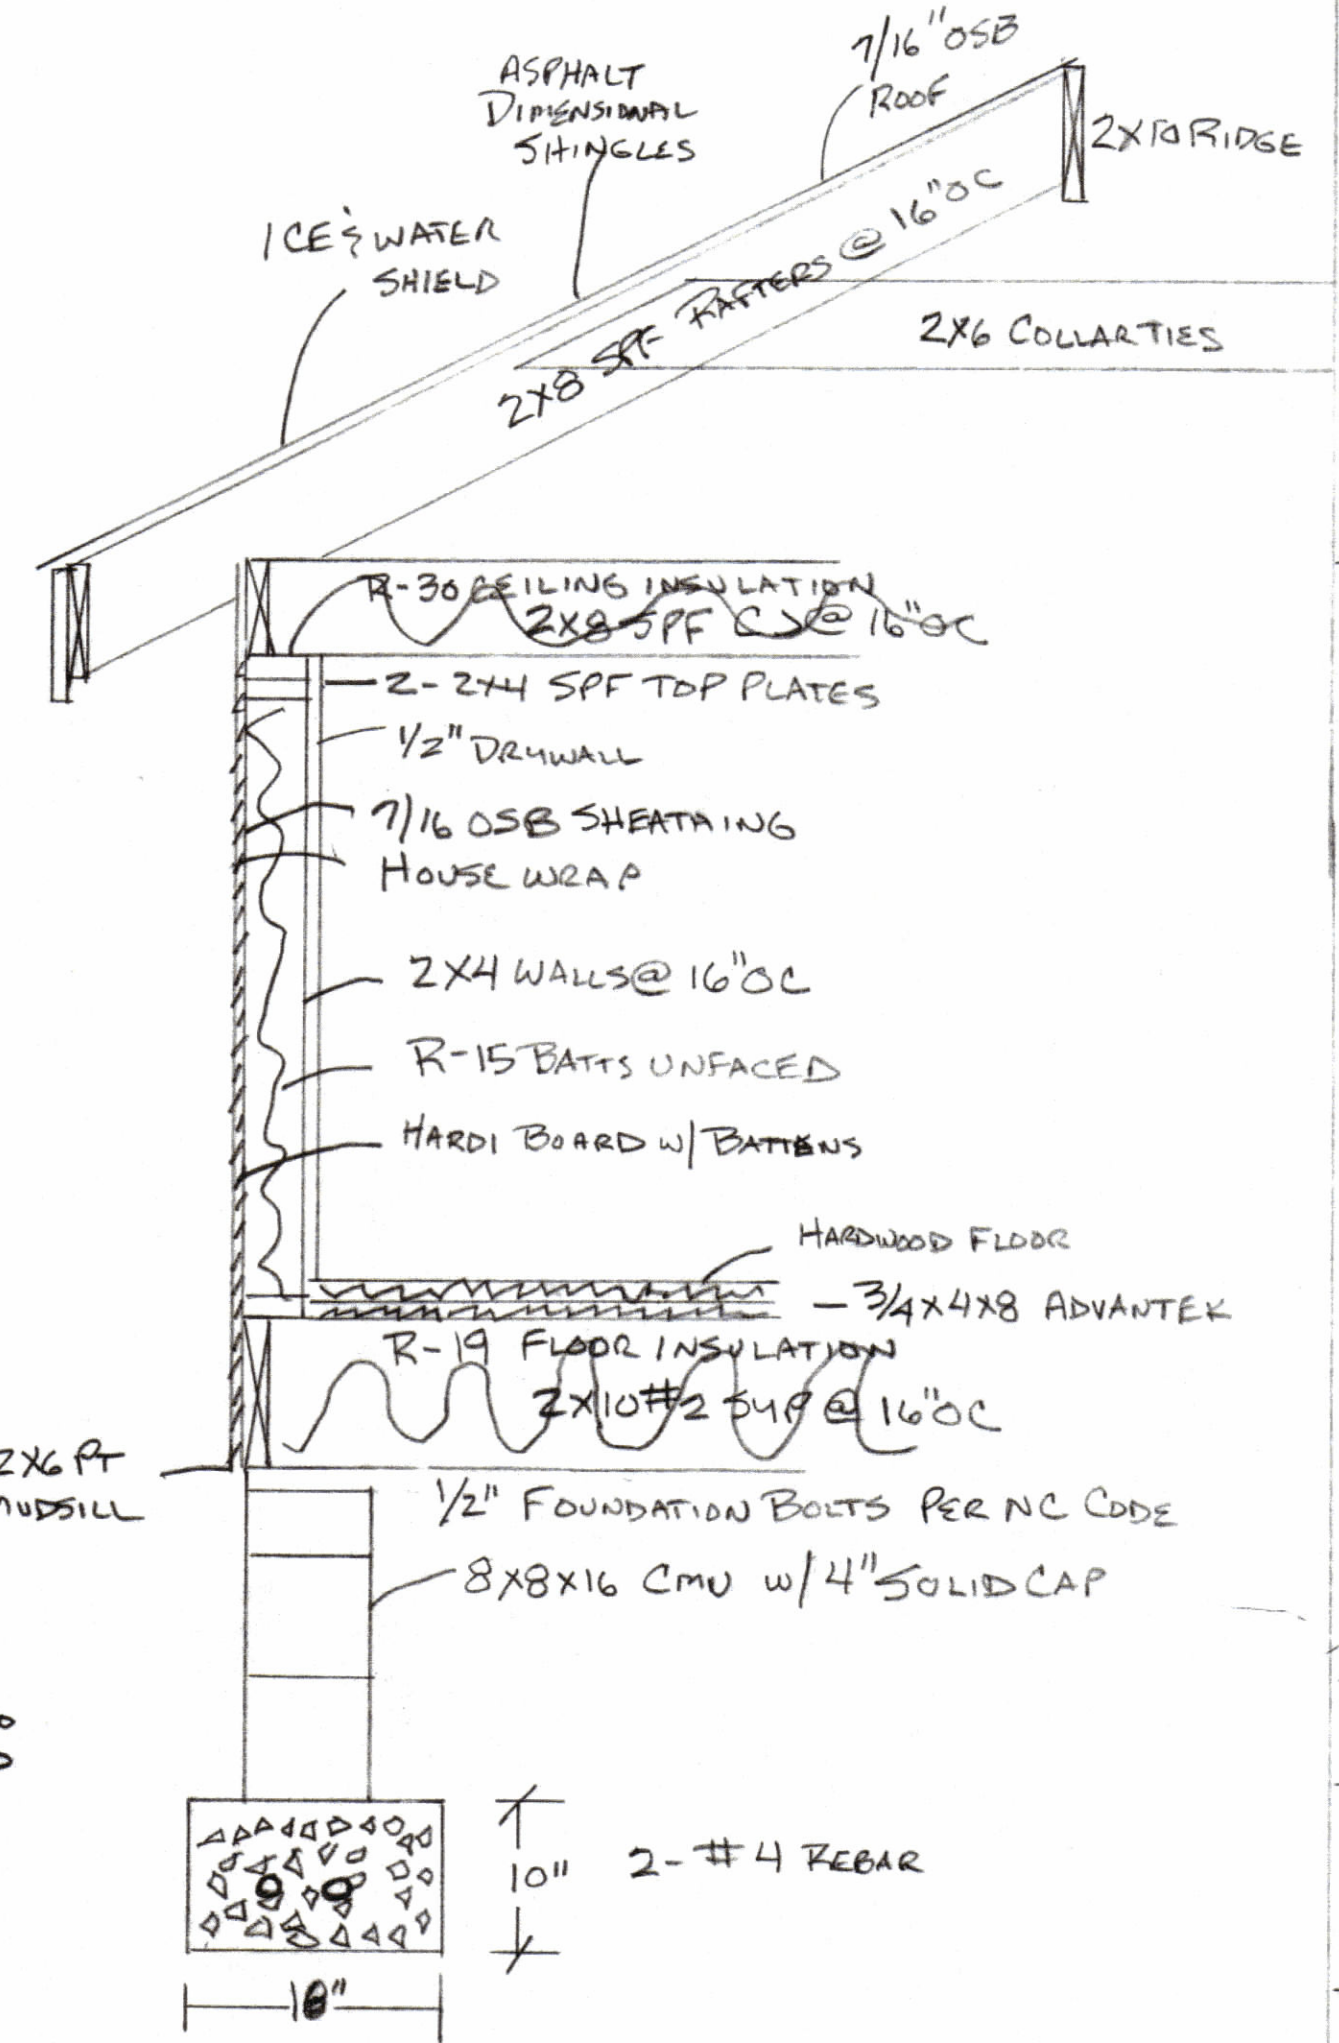 7/16" OSB
ROOF
ASPHALT
DIMENSIONAL
SHINGLES
2X10 RIDGE
ICE & WATER
SHIELD
2X8 SPF RAFTERS @ 16" OC
2X6 COLLARTIES
R-30 CEILING INSULATION
2X8 SPF CJ @ 16" OC
2-2X4 SPF TOP PLATES
1/2" DRYWALL
7/16 OSB SHEATHING
HOUSE WRAP
2X4 WALLS @ 16" OC
R-15 BATTS UNFACED
HARDI BOARD W/ BATTENS
HARDWOOD FLOOR
3/4X4X8 ADVANTEK
R-19 FLOOR INSULATION
2X10 #2 SYP @ 16" OC
2X6 PT
MUDSILL
1/2" FOUNDATION BOLTS PER NC CODE
8X8X16 CMU W/ 4" SOLID CAP
10"
2-#4 REBAR